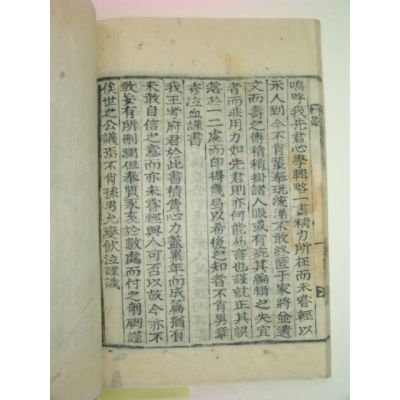 嗚呼我先君心學輯略一書精力所在而未嘗輕以
示人到今不肖輩奉玩流涕不敢終匿于家將登
文而壽傳稍稍掛諸人眼或有疵其編輯之失宜
者而非用力如先君則亦何能易言也謹就正其誤
落於一二處而印得幾局以希後之知者不肖男章
壽泣血謹書
我王考府君於此書積費心力蓋累年而成篇猶有
未敢自信之意而亦未嘗輕與人可否以故今亦不
敢妄有所刪潤但奉質家友於數處而付之剞劂謹
俟世之公議焉不肖孫男允 飲泣謹識